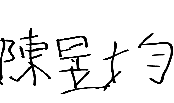 陳昱均